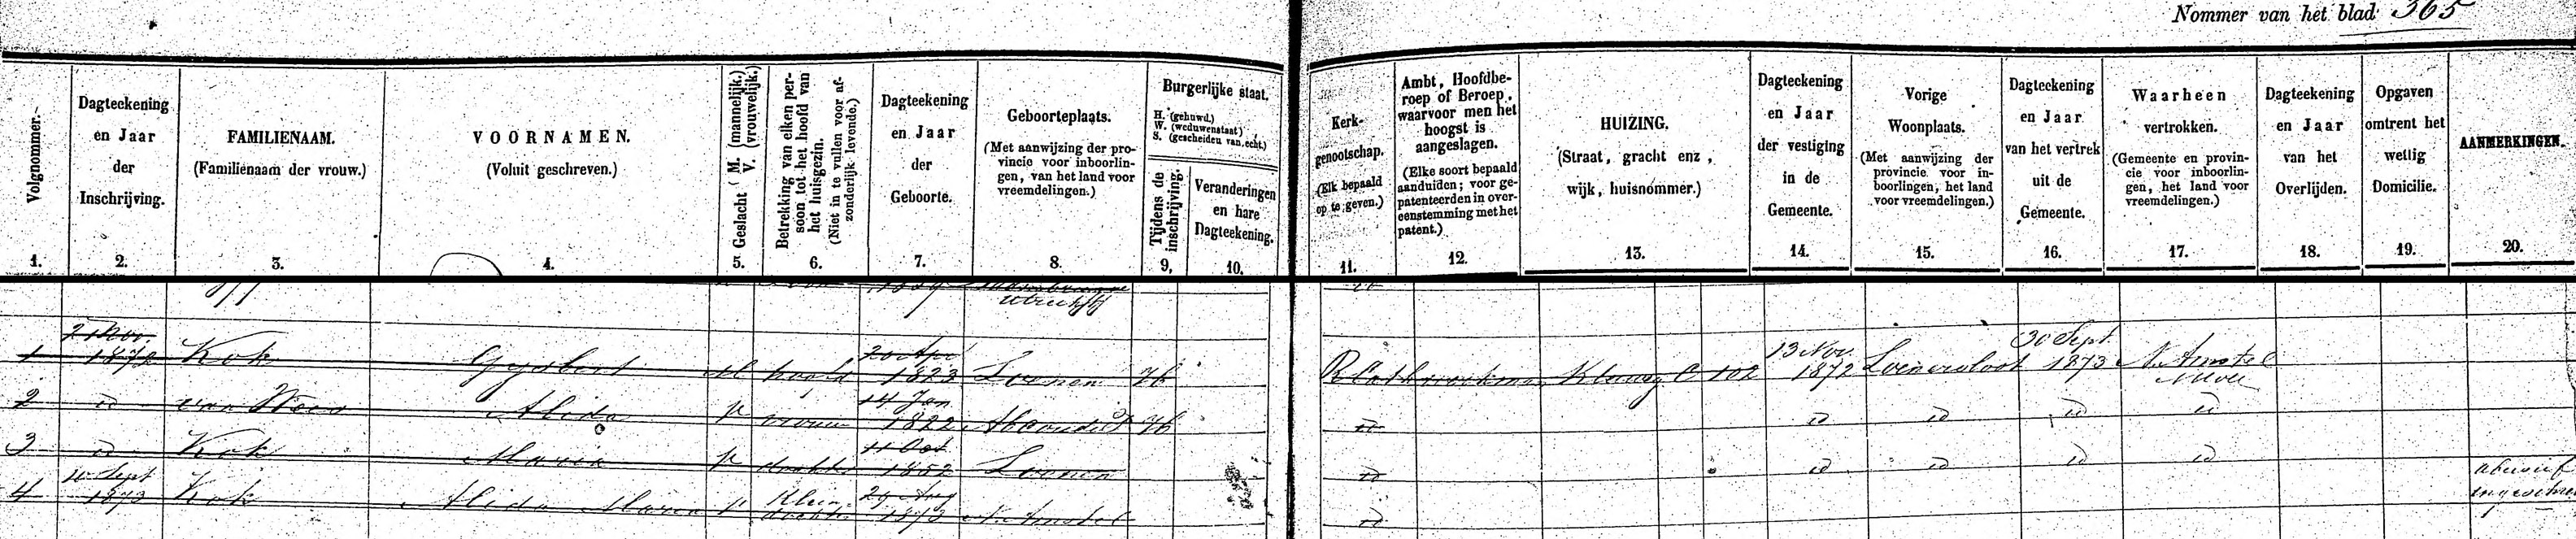 Nommer van het blad 365
Volgnommer.
1.
Dagteekening
en Jaar
der
Inschrijving.
2.
FAMILIENAAM.
(Familienaam der vrouw.)
3.
VOORNAMEN.
(Voluit geschreven.)
4.
Geslacht M. (mannelijk.)
V. (vrouwelijk.)
5.
Betrekking van elken per-
soon tot het hoofd van
het huisgezin.
(Niet in te vullen voor af-
zonderlijk levende.)
6.
Dagteekening
en Jaar
der
Geboorte.
7.
Geboorteplaats.
(Met aanwijzing der pro-
vincie voor inboorlin-
gen, van het land voor
vreemdelingen.)
8.
Burgerlijke staat.
H. (gehuwd.)
W. (weduwenstaat)
S. (gescheiden van echt.)
Tijdens de
inschrijving.
9.
Veranderingen
en hare
Dagteekening.
10.
Kerk-
genootschap.
(Elk bepaald
op te geven.)
11.
Ambt, Hoofdbe-
roep of Beroep,
waarvoor men het
hoogst is
aangeslagen.
(Elke soort bepaald
aanduiden; voor ge-
patenteerden in over-
eenstemming met het
patent.)
12.
HUIZING.
(Straat, gracht enz,
wijk, huisnommer.)
13.
Dagteekening
en Jaar
der vestiging
in de
Gemeente.
14.
Vorige
Woonplaats.
(Met aanwijzing der
provincie voor in-
boorlingen, het land
voor vreemdelingen.)
15.
Dagteekening
en Jaar
van het vertrek
uit de
Gemeente.
16.
Waarheen
vertrokken.
(Gemeente en provin-
cie voor inboorlin-
gen, het land voor
vreemdelingen.)
17.
Dagteekening
en Jaar
van het
Overlijden.
18.
Opgaven
omtrent het
wettig
Domicilie.
19.
AANMERKINGEN.
20.
Utrecht
id
1 2 Nov. 1872 Kok Gysbert M hoofd 20 Apr 1823 Loenen H R Cath C 102 13 Nov. 1872 Loenersloot 30 Sept. 1873 N. Amstel
2 id van Alida V vrouw 14 Jan 1822 Abcoude H id id id id id
3 id Kok Maria V dochter 11 Oct 1852 Loenen id id id id id
4 10 Sept 1873 Kok Alida Maria V Klein dochter 29 Aug 1873 N. Amstel id abusief